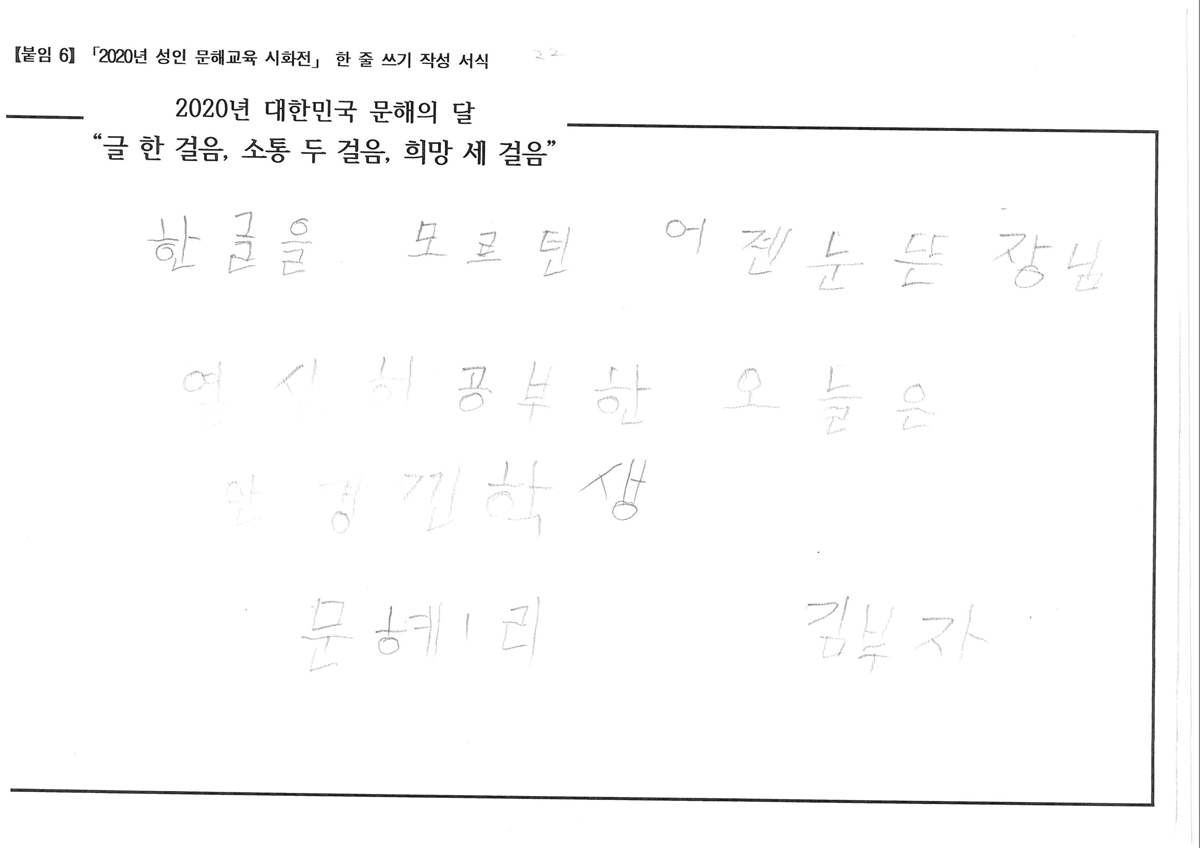 【붙임 6】 「2020년 성인 문해교육 시화전」 한 줄 쓰기 작성 서식 22
2020년 대한민국 문해의 달
“글 한 걸음, 소통 두 걸음, 희망 세 걸음”
한글을 모르던 어젠 눈 뜬 장님
열심히 공부한 오늘은
안경낀학생
문혜1리 김부자